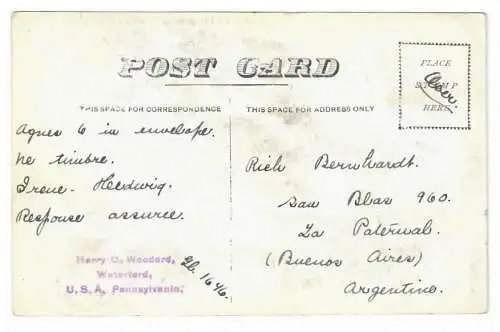 POST CARD
PLACE
STAMP
HERE
THIS SPACE FOR CORRESPONDENCE
THIS SPACE FOR ADDRESS ONLY
Agnes 6 in envelope.
ne timbre.
Irene. Hedwig.
Response assuree.
Harry O. Woodard,
Waterford,
U. S. A. Pennsylvania.
1646.
Rich Bernhardt.
San Blas 960.
La Paternal.
(Buenos Aires)
Argentina.